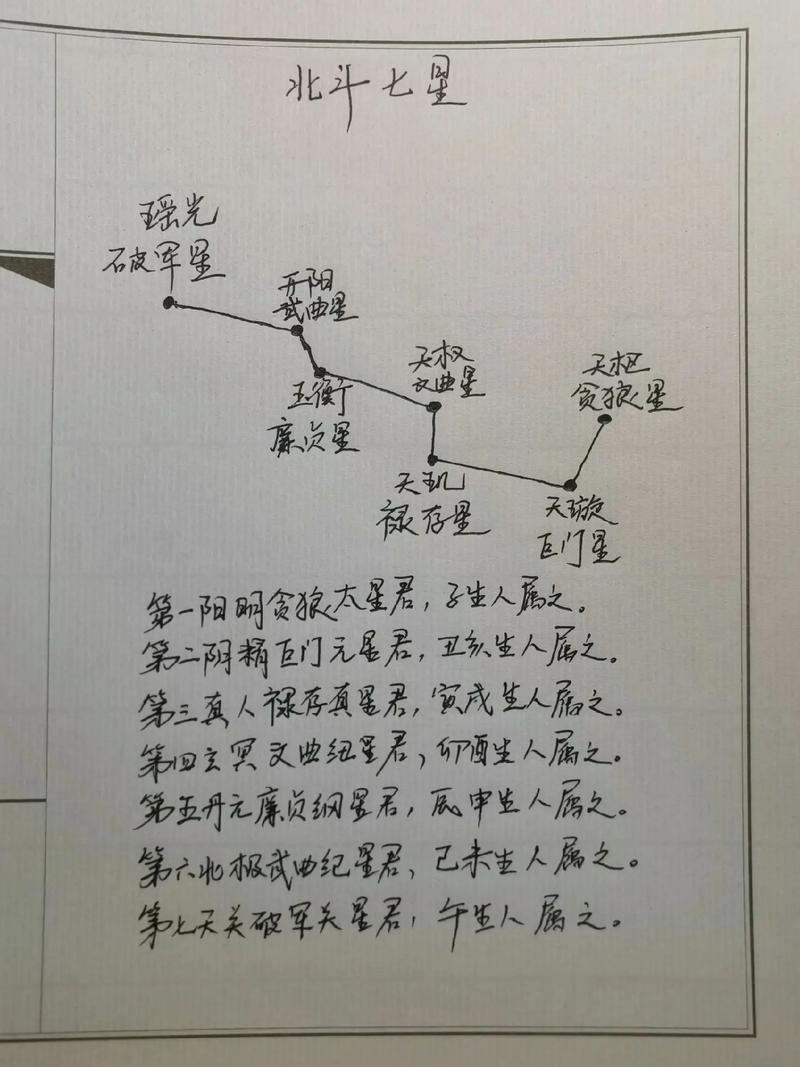 北斗七星
瑶光
破军星
开阳
武曲星
玉衡
廉贞星
天权
文曲星
天枢
贪狼星
天玑
禄存星
天璇
巨门星
第一阳明贪狼太星君，子生人属之。
第二阴精巨门元星君，丑亥生人属之。
第三真人禄存真星君，寅戌生人属之。
第四玄冥文曲纽星君，卯酉生人属之。
第五丹元廉贞纲星君，辰申生人属之。
第六北极武曲纪星君，巳未生人属之。
第七天关破军关星君，午生人属之。